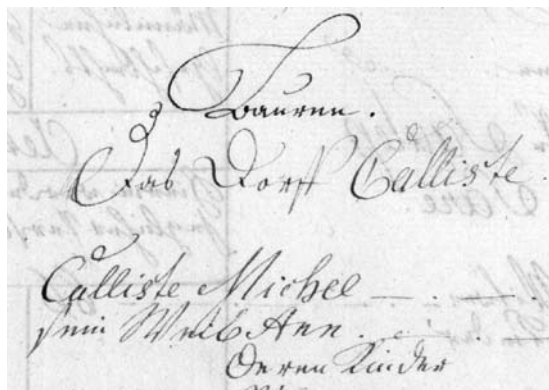 Bauren.
Das Dorff Calliste.
Calliste Michel
sein Weib Ann.
Deren Kinder